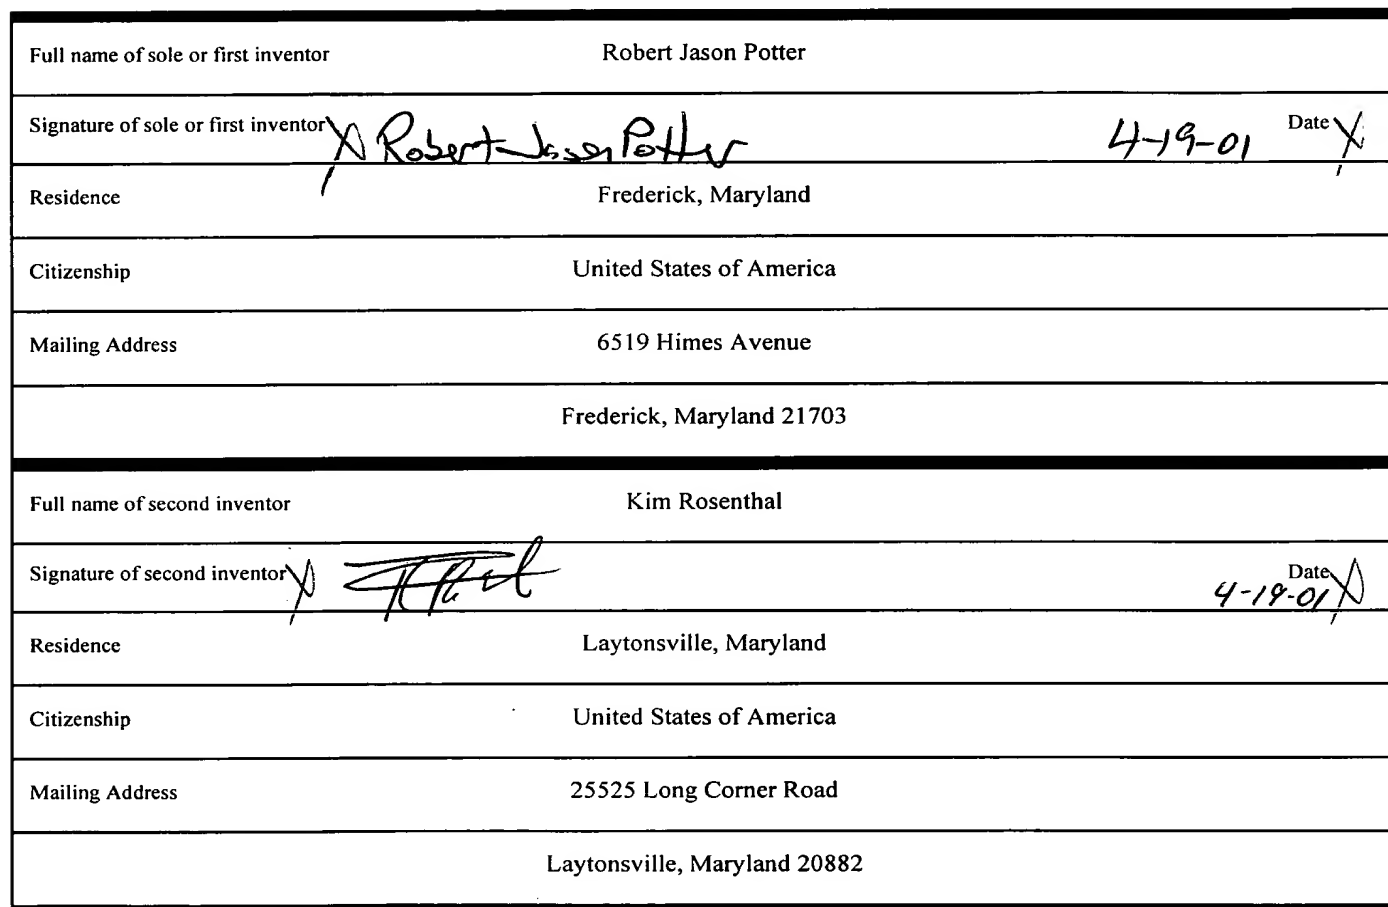 Full name of sole or first inventor Robert Jason Potter
Signature of sole or first inventor X Robert Jason Potter 4-19-01 Date X
Residence Frederick, Maryland
Citizenship United States of America
Mailing Address 6519 Himes Avenue
Frederick, Maryland 21703
Full name of second inventor Kim Rosenthal
Signature of second inventor X 4-19-01 Date X
Residence Laytonsville, Maryland
Citizenship United States of America
Mailing Address 25525 Long Corner Road
Laytonsville, Maryland 20882